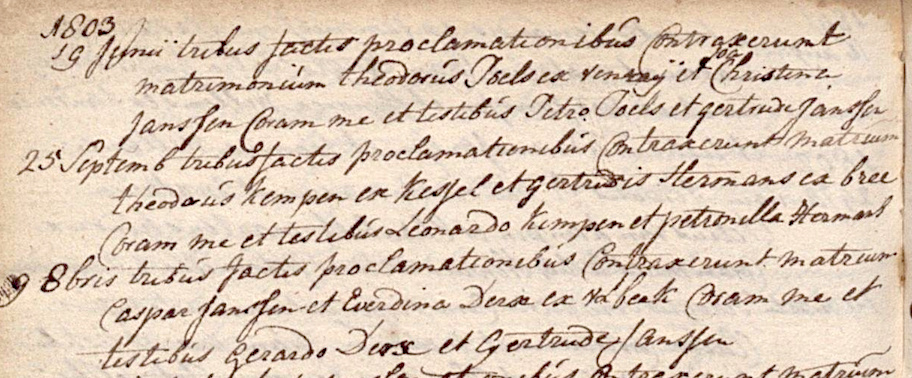 1803
19 Junii tribus factis proclamationibus Contraxerunt
matrimonium theodorus Poels ex venraij et Joa Christina
Janssen Coram me et testibus Petro Poels et gertrude Janssen
25 Septemb tribus factis proclamationibus Contraxerunt matrium
theodorus Kempen ex Kessel et gertrudis Hermans ex bree
Coram me et testibus Leonardo Kempen et petronella Hermans
9 8bris tribus factis proclamationibus Contraxerunt matrium
Caspar Janssen et Everdina Derx ex beek Coram me et
testibus Gerardo Derx et Gertrude Janssen
Contraxerunt matrium